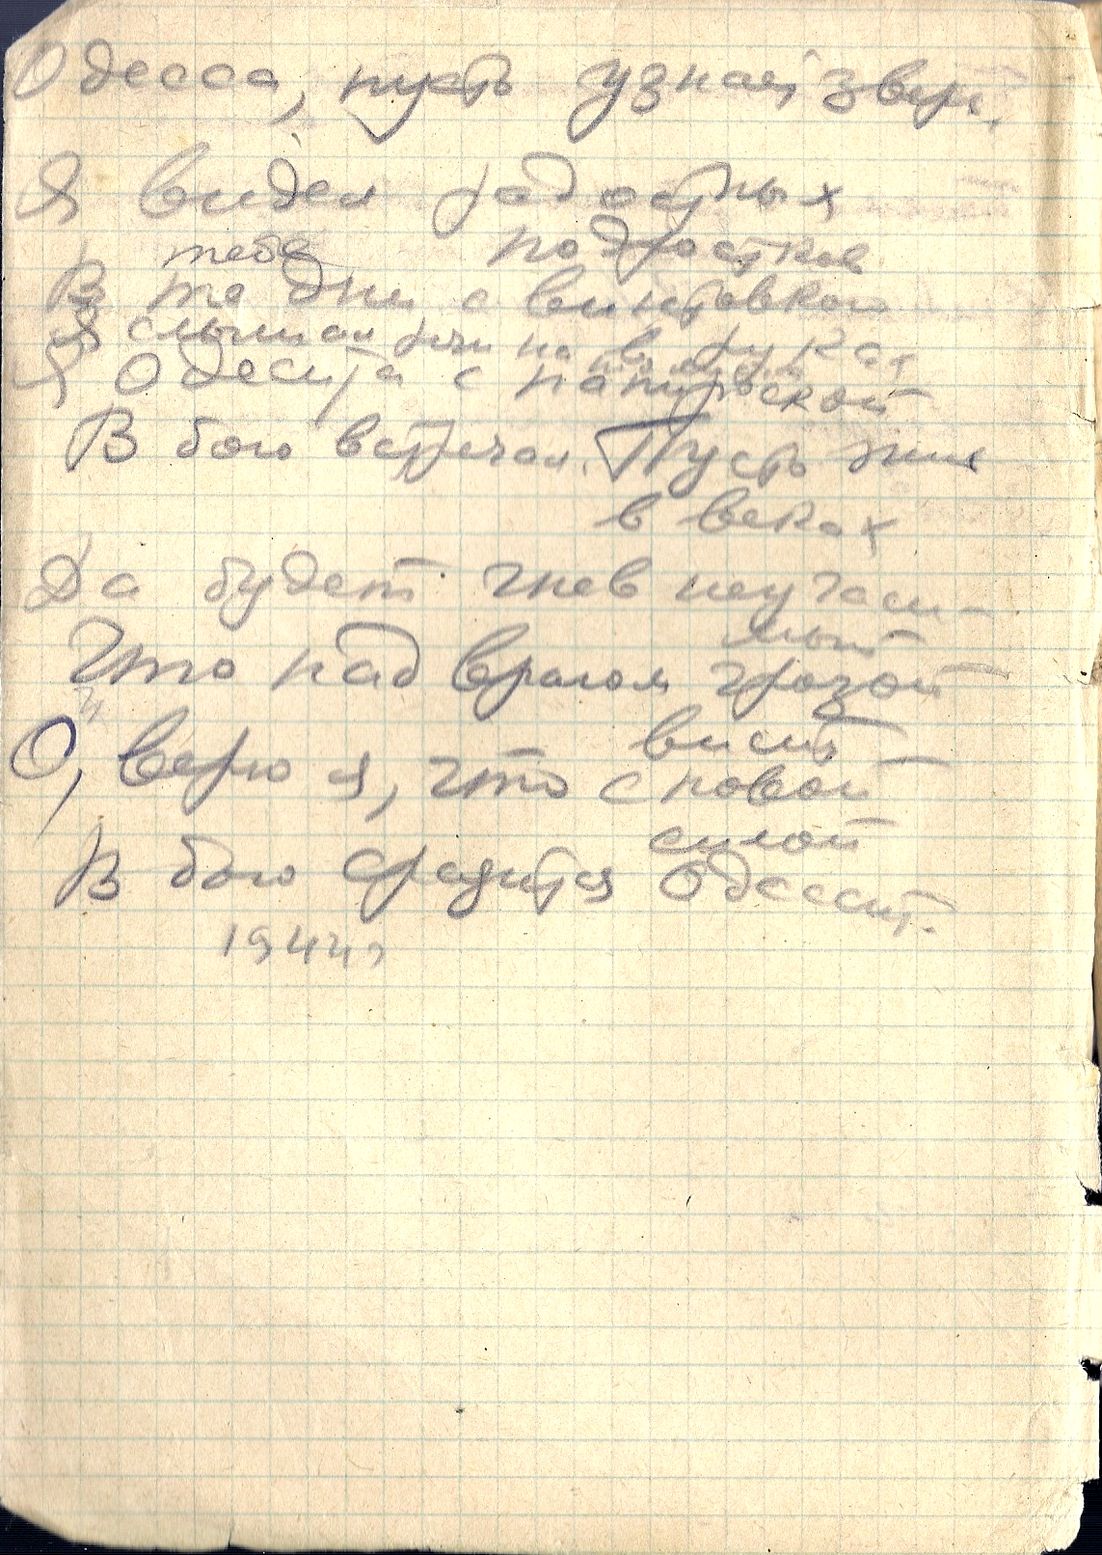 Одесса, пусть узнает звери.
Я видел радостных
подростков
тебе
В те дни с винтовкою
в руках
Я слышал речи на
Я Одесита с папироской
В бою встречал. Пусть
в веках
Да будет гнев неугаси-
мый
Что над врагом грозой
висит
О, верю я, что с новой
силой
В бою сразится Одессит.
1944г